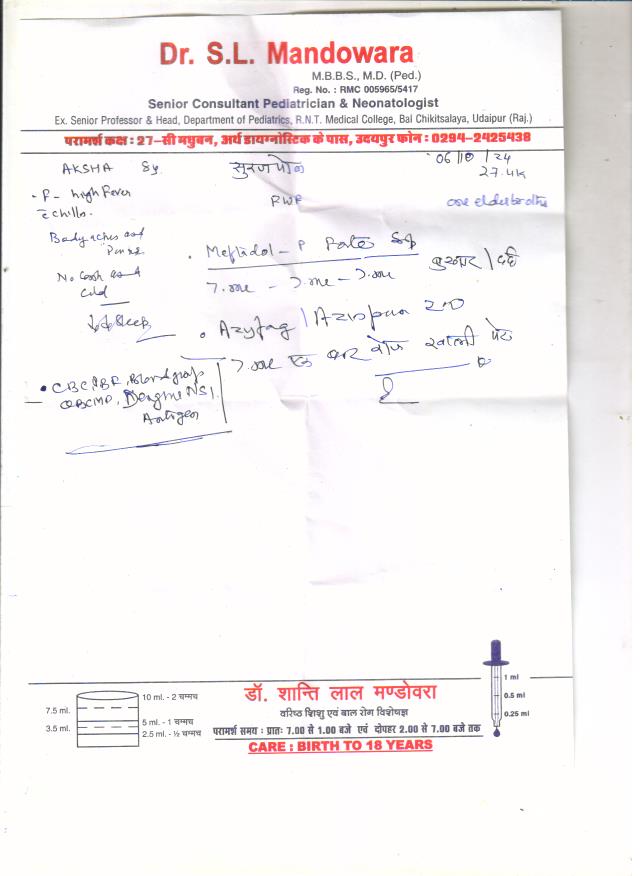 Dr. S.L. Mandowara
M.B.B.S., M.D. (Ped.)
Reg. No. : RMC 005965/5417
Senior Consultant Pediatrician & Neonatologist
Ex. Senior Professor & Head, Department of Pediatrics, R.N.T. Medical College, Bal Chikitsalaya, Udaipur (Raj.)
परामर्श कक्ष : 27-सी मधुबन, अर्थ डायग्नोस्टिक के पास, उदयपुर फोन : 0294-2425438
AKSHA 8y सुरजपोल 06/10/24
27.4K
F- high fever
c chills.
one elder brother
Body aches and
No Cough and
Cold
Sleep
Meftadol - P Forte Syp बुखार / दर्द
7.5ml - 7.5ml - 7.5ml
200
7.5ml एक बार रोज खाली पेट
CBC, PBF, Blood group
QBCMP, Dengue NS1
Antigen
10 ml. - 2 चम्मच
7.5 ml.
5 ml. - 1 चम्मच
3.5 ml.
2.5 ml. - ½ चम्मच
डॉ. शान्ति लाल मण्डोवरा
वरिष्ठ शिशु एवं बाल रोग विशेषज्ञ
परामर्श समय : प्रातः 7.00 से 1.00 बजे एवं दोपहर 2.00 से 7.00 बजे तक
CARE : BIRTH TO 18 YEARS
1 ml
0.5 ml
0.25 ml